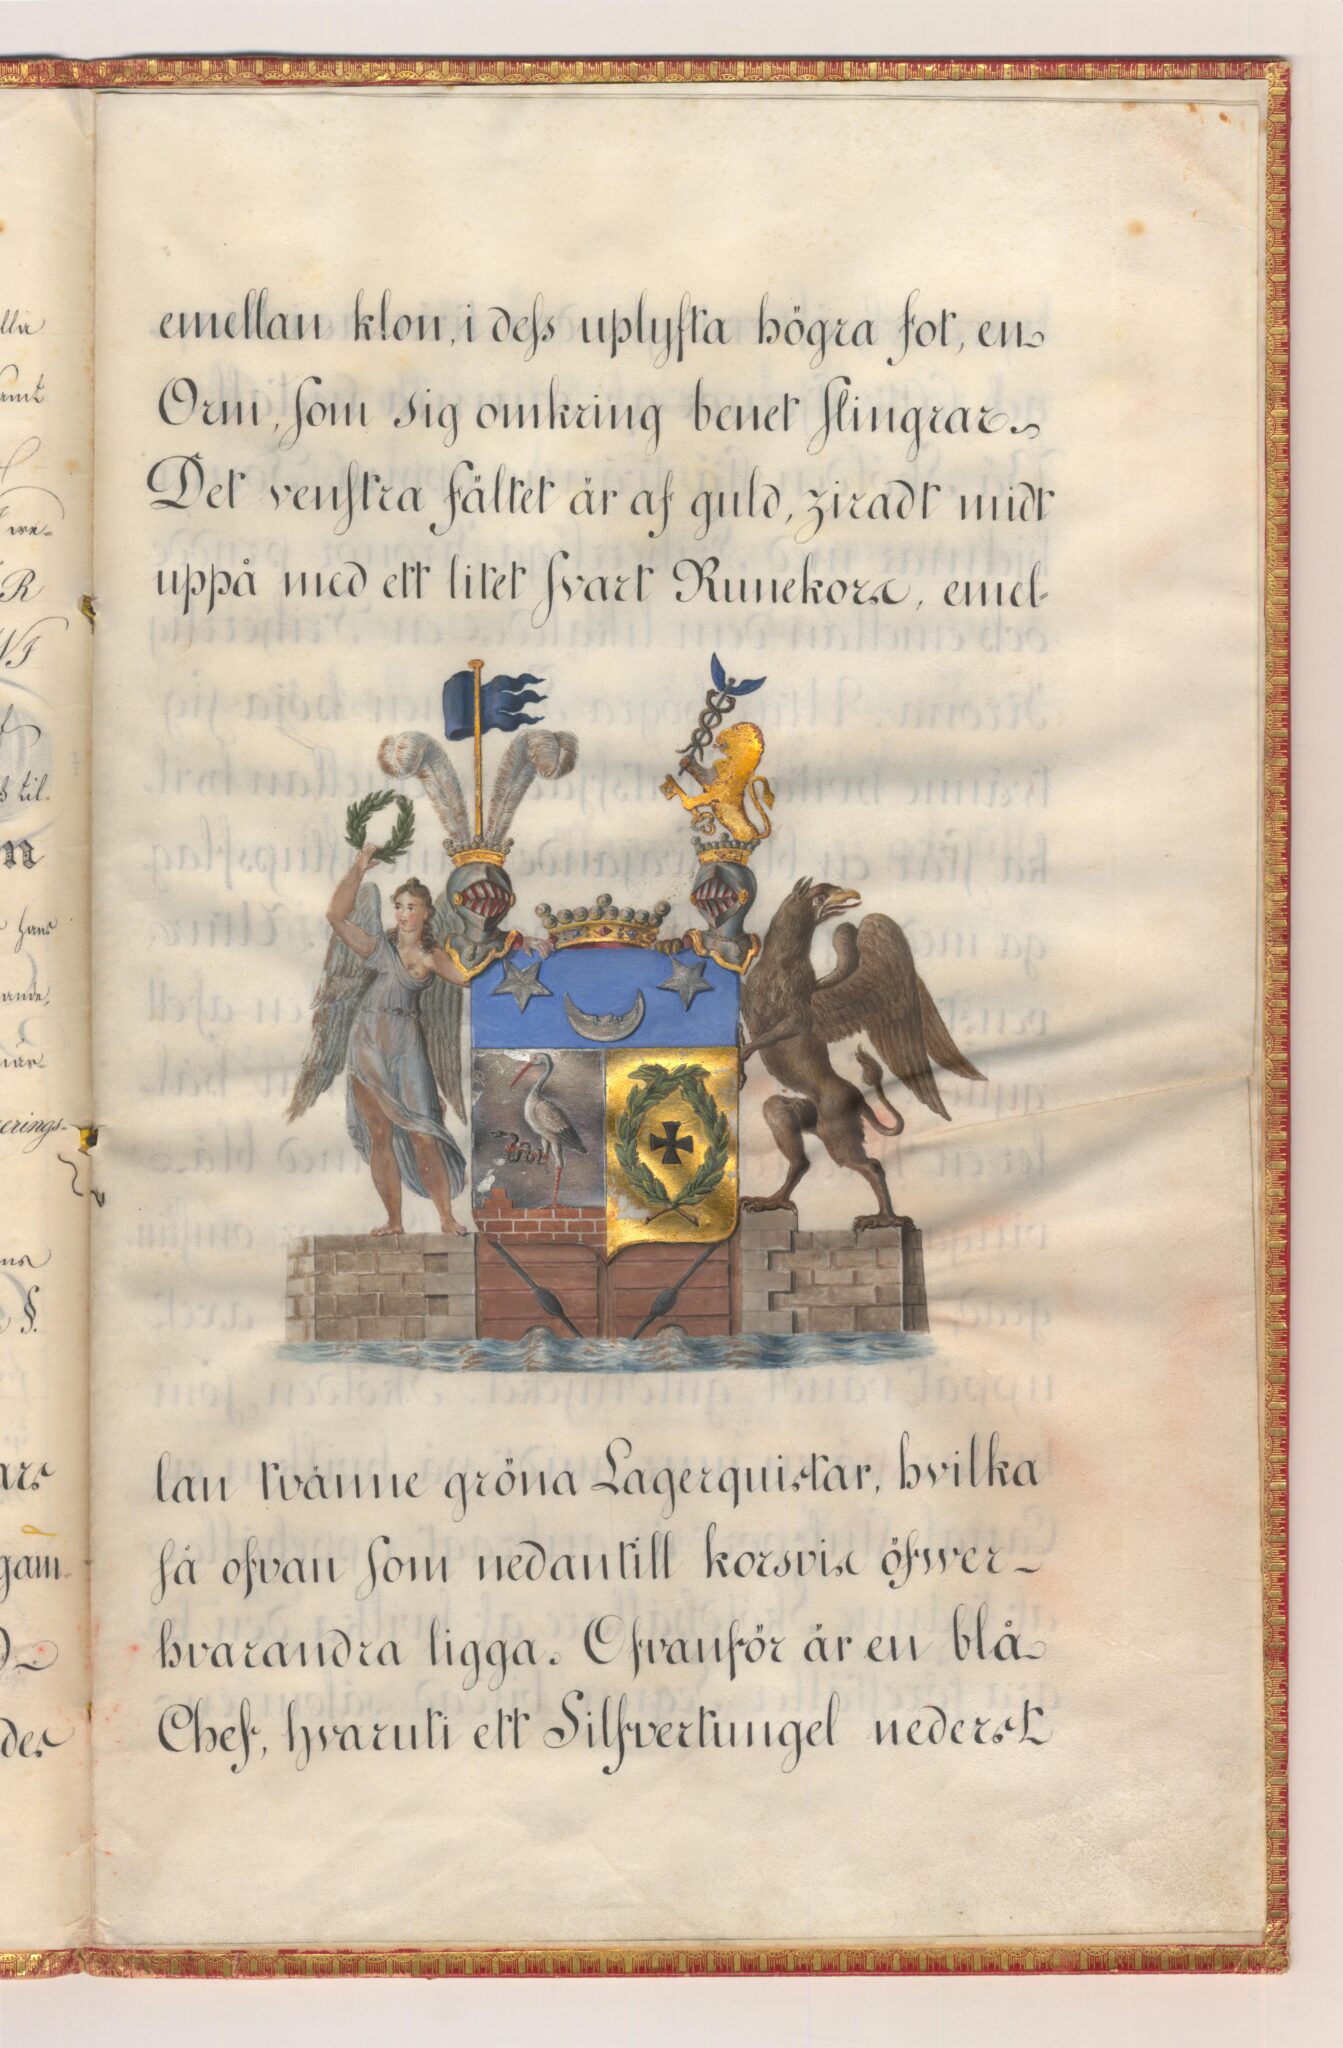 emellan klon, i dess uplyfta högra fot, en
Orm, som sig omkring benet slingrar.
Det venstra fältet är af guld, ziradt midt
uppå med ett litet svart Runekors, emel-
lan tvänne gröna Lagerquistar, hvilka
så ofvan som nedantill korsvis öfwer-
hvarandra ligga. Ofvanför är en blå
Chef, hvaruti ett Silfvertungel nederst